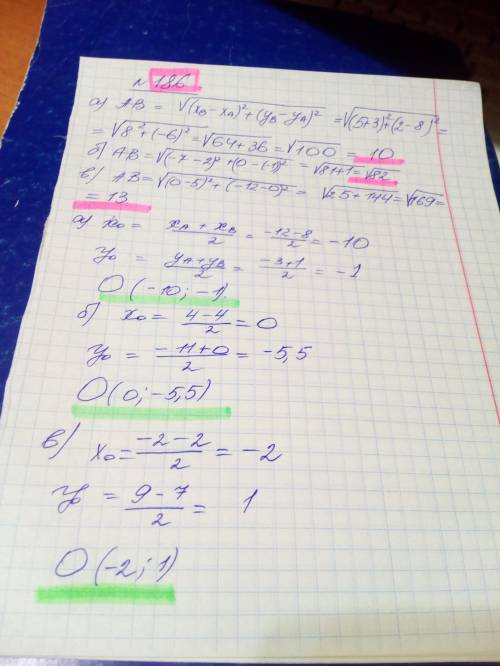 № 186
а) AB = √(x_B - x_A)² + (y_B - y_A)² = √(5+3)² + (2-8)² =
= √8² + (-6)² = √64+36 = √100 = 10
б) AB = √(-7-2)² + (0-(-1))² = √81+1 = √82
в) AB = √(0-5)² + (-12-0)² = √25+144 = √169 =
= 13
а) x₀ = (x_A + x_B)/2 = (-12-8)/2 = -10
y₀ = (y_A + y_B)/2 = (-3+1)/2 = -1
O (-10; -1).
б) x₀ = (4-4)/2 = 0
y₀ = (-11+0)/2 = -5,5
O (0; -5,5)
в) x₀ = (-2-2)/2 = -2
y₀ = (9-7)/2 = 1
O (-2; 1)